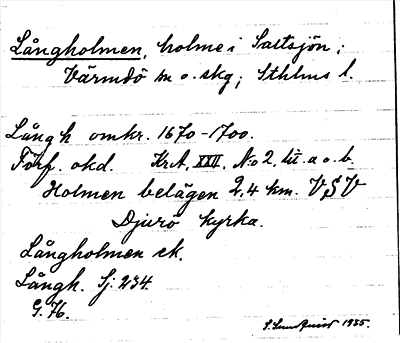 Långholmen, holme i Saltsjön;
Värmdö m. o. skg; Sthlms l.
Långh omkr. 1670-1700.
Förf. okd. Krt. XXII. No 2. lit. a o. b.
Holmen belägen 2,4 km. VSV
Djurö kyrka.
Långholmen ek.
Långh. Sj. 234.
G. 76.
S. Lundquist 1935.